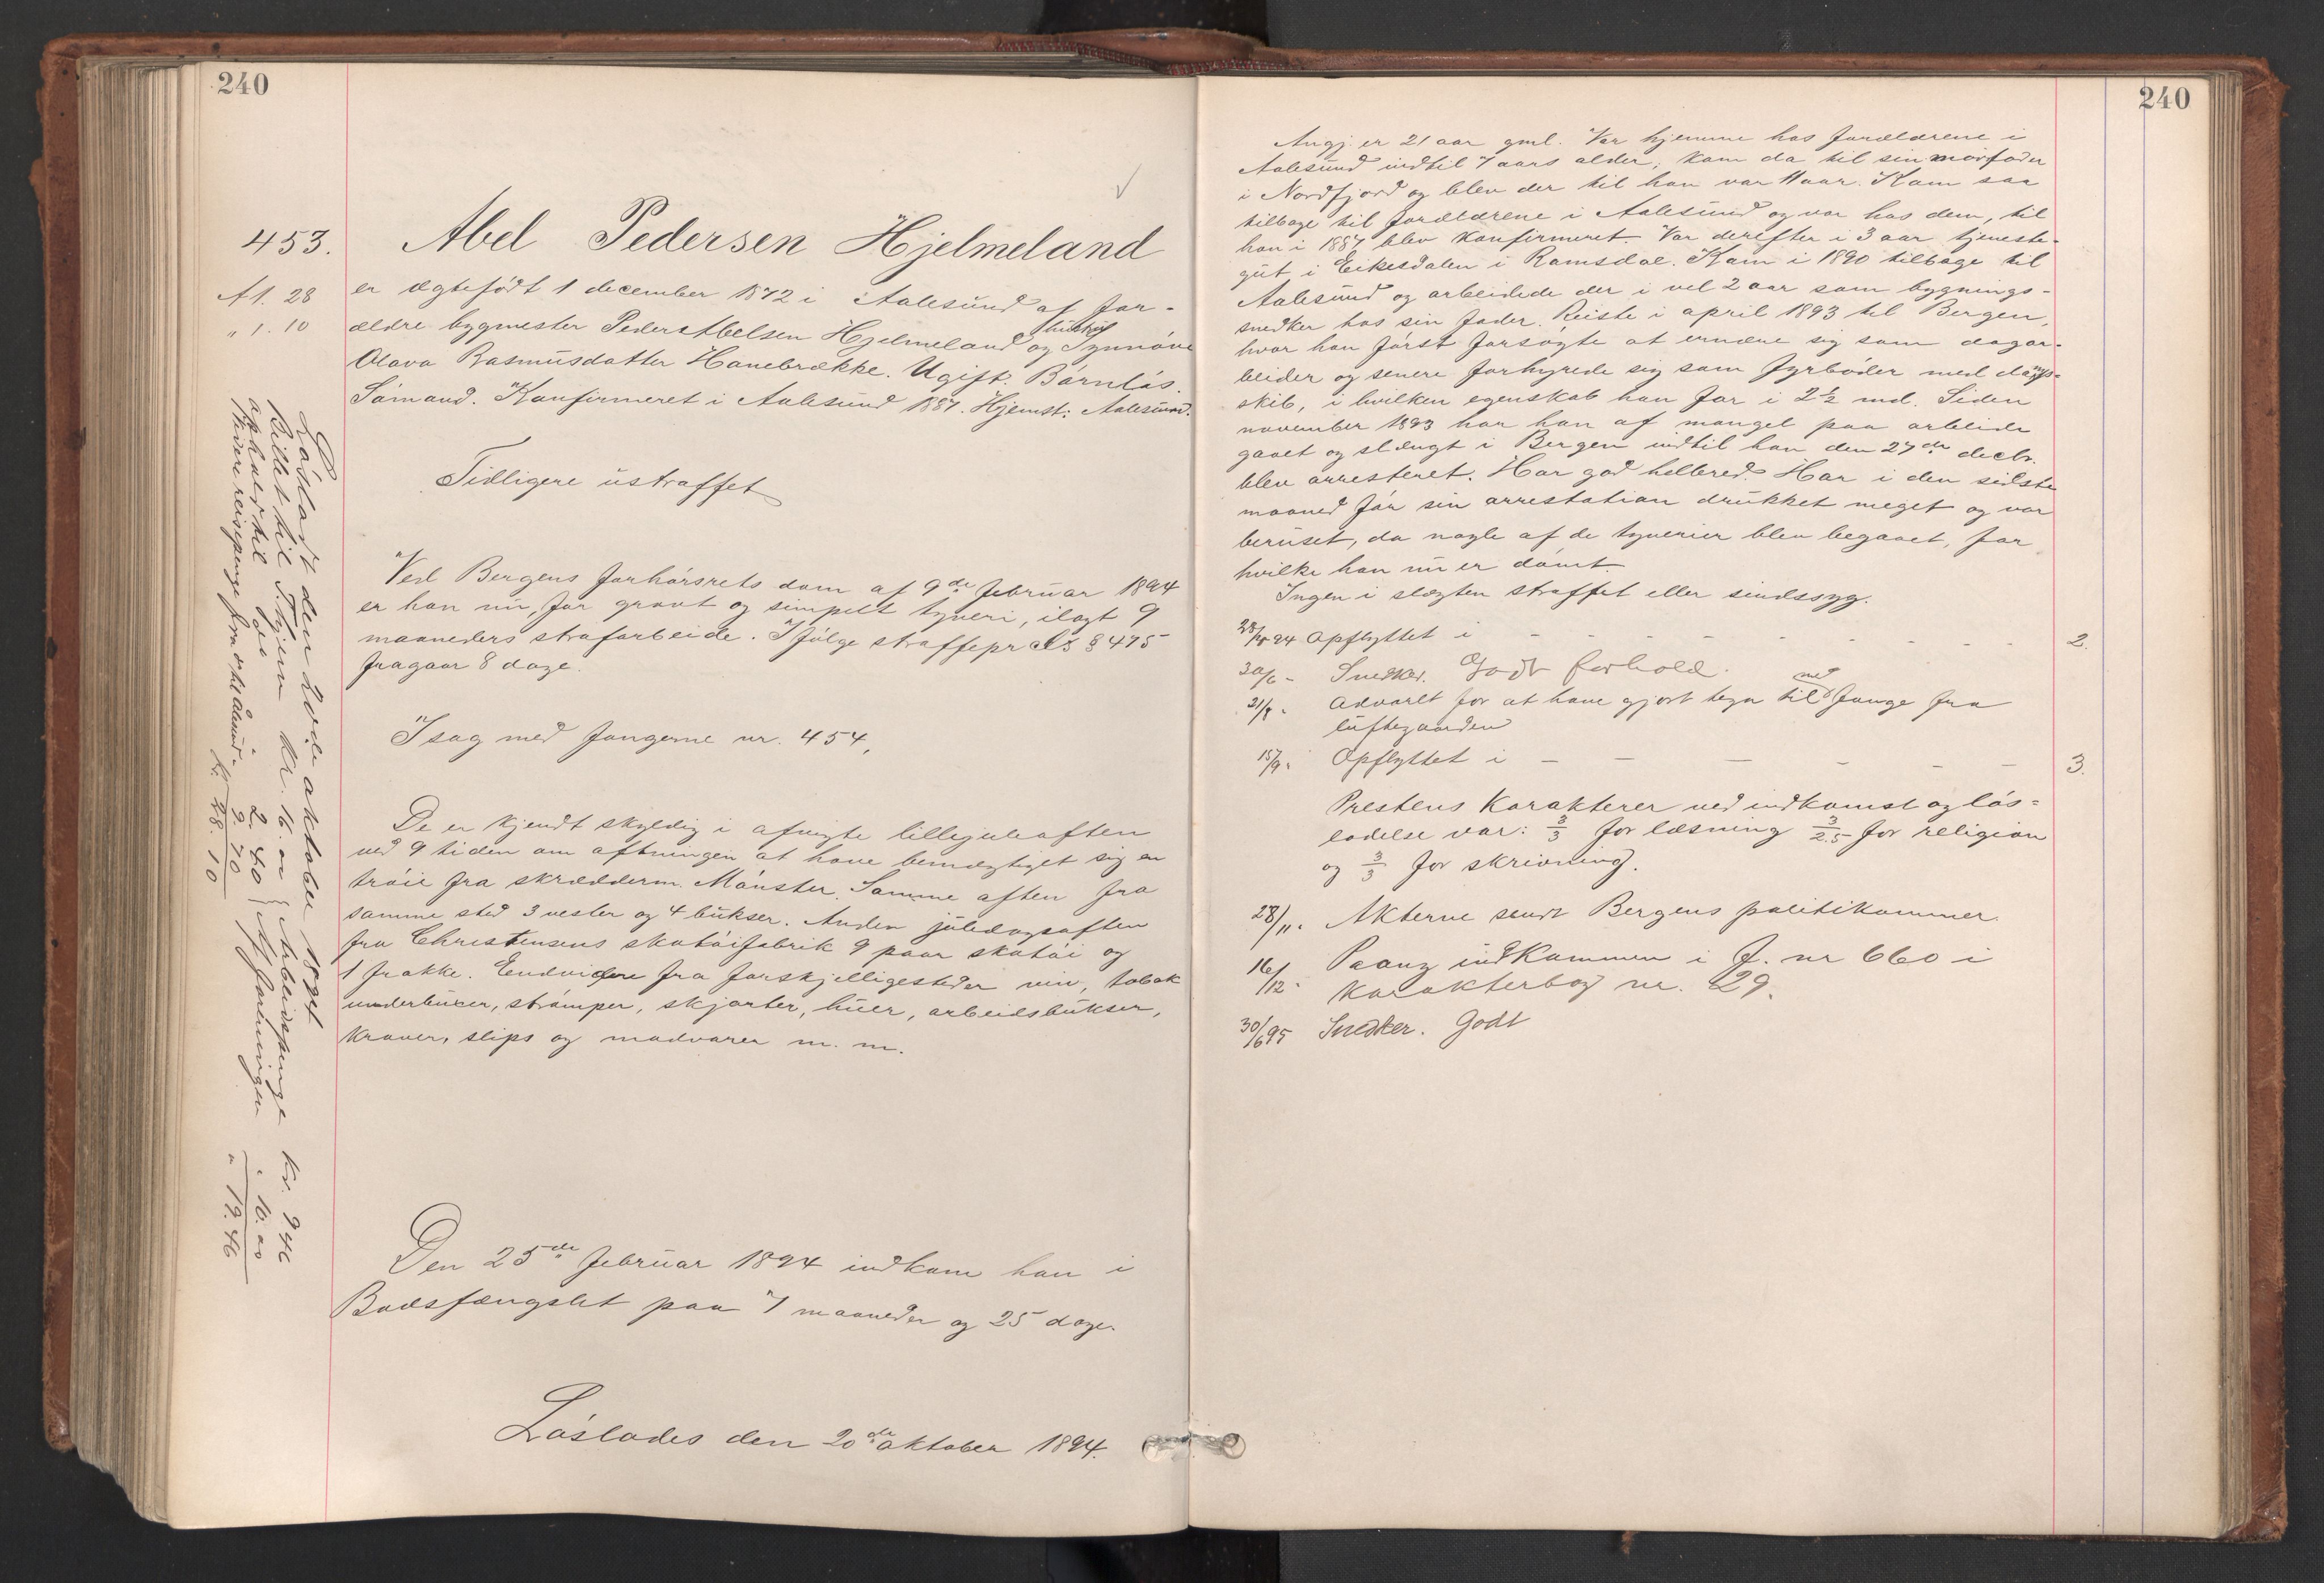 240
453.
Abel Pedersen Hjelmeland
A 1. 28
" 1. 10
er ægtefødt 1 december 1872 i Aalesund af for-
ældre bygmester Peder Abelsen Hjelmeland og hustru Synnøve
Olava Rasmusdatter Hanebrække. Ugift. Børnløs.
Sømand. Konfirmeret i Aalesund 1887. Hjemst: Aalesund.
Tidligere ustraffet
Ved Bergens forhørsrets dom af 9de februar 1894
er han nu, for grovt og simpelt tyveri, ilagt 9
maaneders strafarbeide. Ifølge straffepr. Ls § 475
fragaar 8 dage.
I sag med fangerne nr. 454,
De er kjendt skyldig i afvigte lillejuleaften
ved 9 tiden om aftningen at have bemægtiget sig en
trøie fra skrædderm. Mønster. Samme aften fra
samme sted 3 vester og 4 bukser. Anden juledagsaften
fra Christensens skotøifabrik 9 paar skotøi og
1 frakke. Endvidere fra forskjellige steder vin, tobak
underbuxer, strømper, skjorter, huer, arbeidsbukser,
kraver, slips og madvarer m. m.
Den 25de februar 1894 indkom han i
Bodsfængslet paa 7 maaneder og 25 dage.
Løslades den 20de oktober 1894.
Løsladt den 20de oktober 1894
Billet til hjem kr. 16. oo { Arbeidspenge kr. 9 46
ophold til do " 2. 40 { Af forningen " 10. oo
videre reisepenge fra til Aalesund " 9. 70 " 19. 46
kr. 28. 10
240
Angj. er 21 aar gml. Var hjemme hos forældrene i
Aalesund indtil 7 aars alder; kom da til sin morfader
i Nordfjord og blev der til han var 11 aar. Kom saa
tilbage til forældrene i Aalesund og var hos dem, til
han i 1887 blev konfirmeret. Var derefter i 3 aar tjeneste-
gut i Eikesdalen i Romsdal. Kom i 1890 tilbage til
Aalesund og arbeidede der i vel 2 aar som bygnings-
snedker hos sin fader. Reiste i april 1893 til Bergen,
hvor han først forsøgte at ernære sig som dagar-
beider og senere forhyrede sig som fyrbøder med damp-
skib, i hvilken egenskab han for i 2½ md. Siden
november 1893 har han af mangel paa arbeide
gaaet og slængt i Bergen indtil han den 27de decbr.
blev arresteret. Har god helbred. Har i den sidste
maaned før sin arrestation drukket meget og var
beruset, da nogle af de tyverier blev begaaet, for
hvilke han nu er dømt.
Ingen i slægten straffet eller sindssyg.
94 Opflyttet i - - - - - - - 2.
30/6 - Snedker. Godt forhold.
31/8 " Advarlt for at have gjort tegn til medfange fra
luftegaarden
15/9 " Opflyttet i - - - - - - 3.
Prestens Karakterer ved indkomst og løs-
ladelse var: 3/3 for læsning 3/2.5 for religion
og 3/3 for skrivning.
28/11 " Akterne sendt Bergens politikammer.
16/12 " indkommen i J. nr 660 i
karakterbog nr. 29.
30/6 95 Snedker. Godt